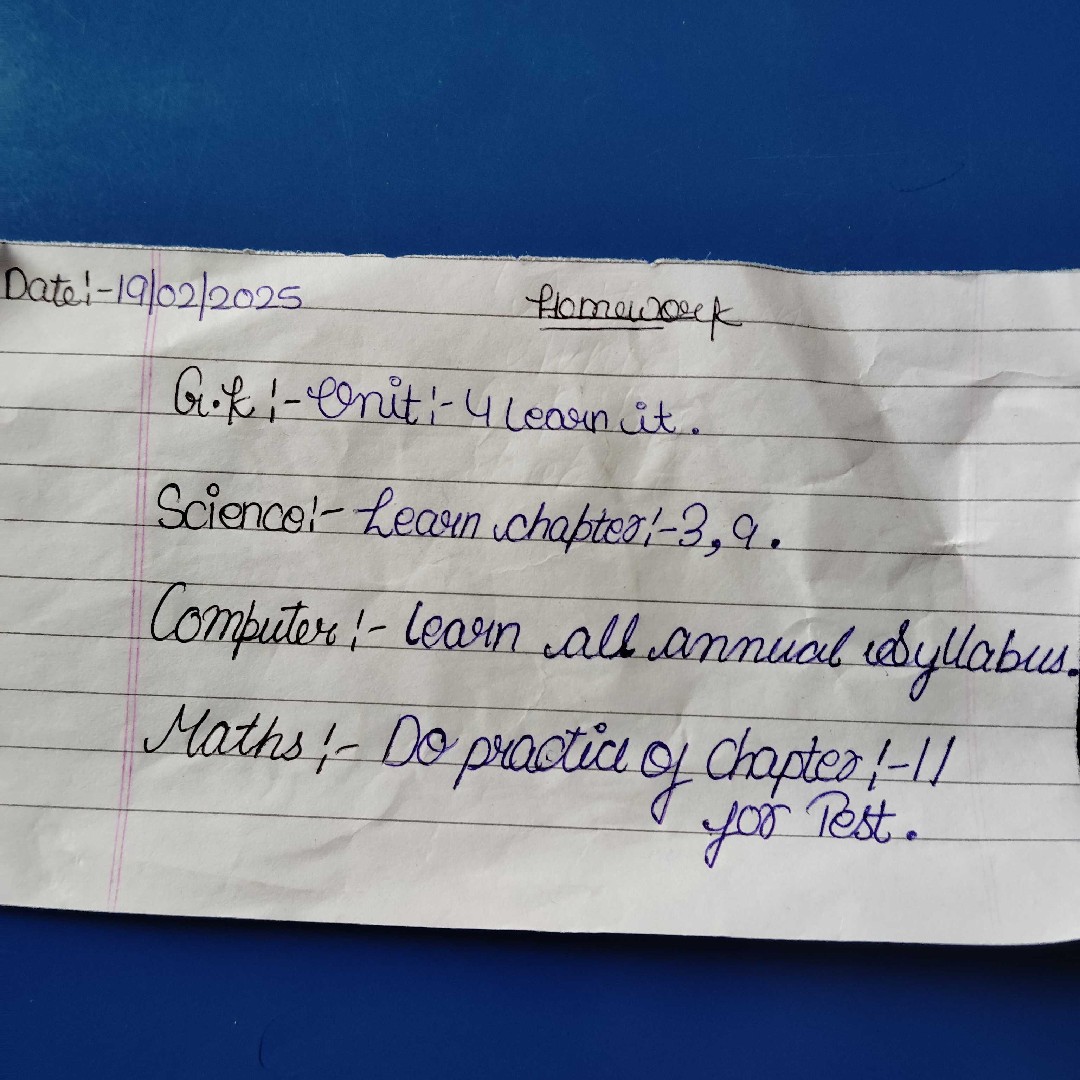 Date:-19/02/2025 Homework
G.K:-Unit:-4 learn it.
Science:- Learn chapter:-3, 9.
Computer:- learn all annual Syllabus.
Maths:- Do practice of Chapter:-11
for Test.